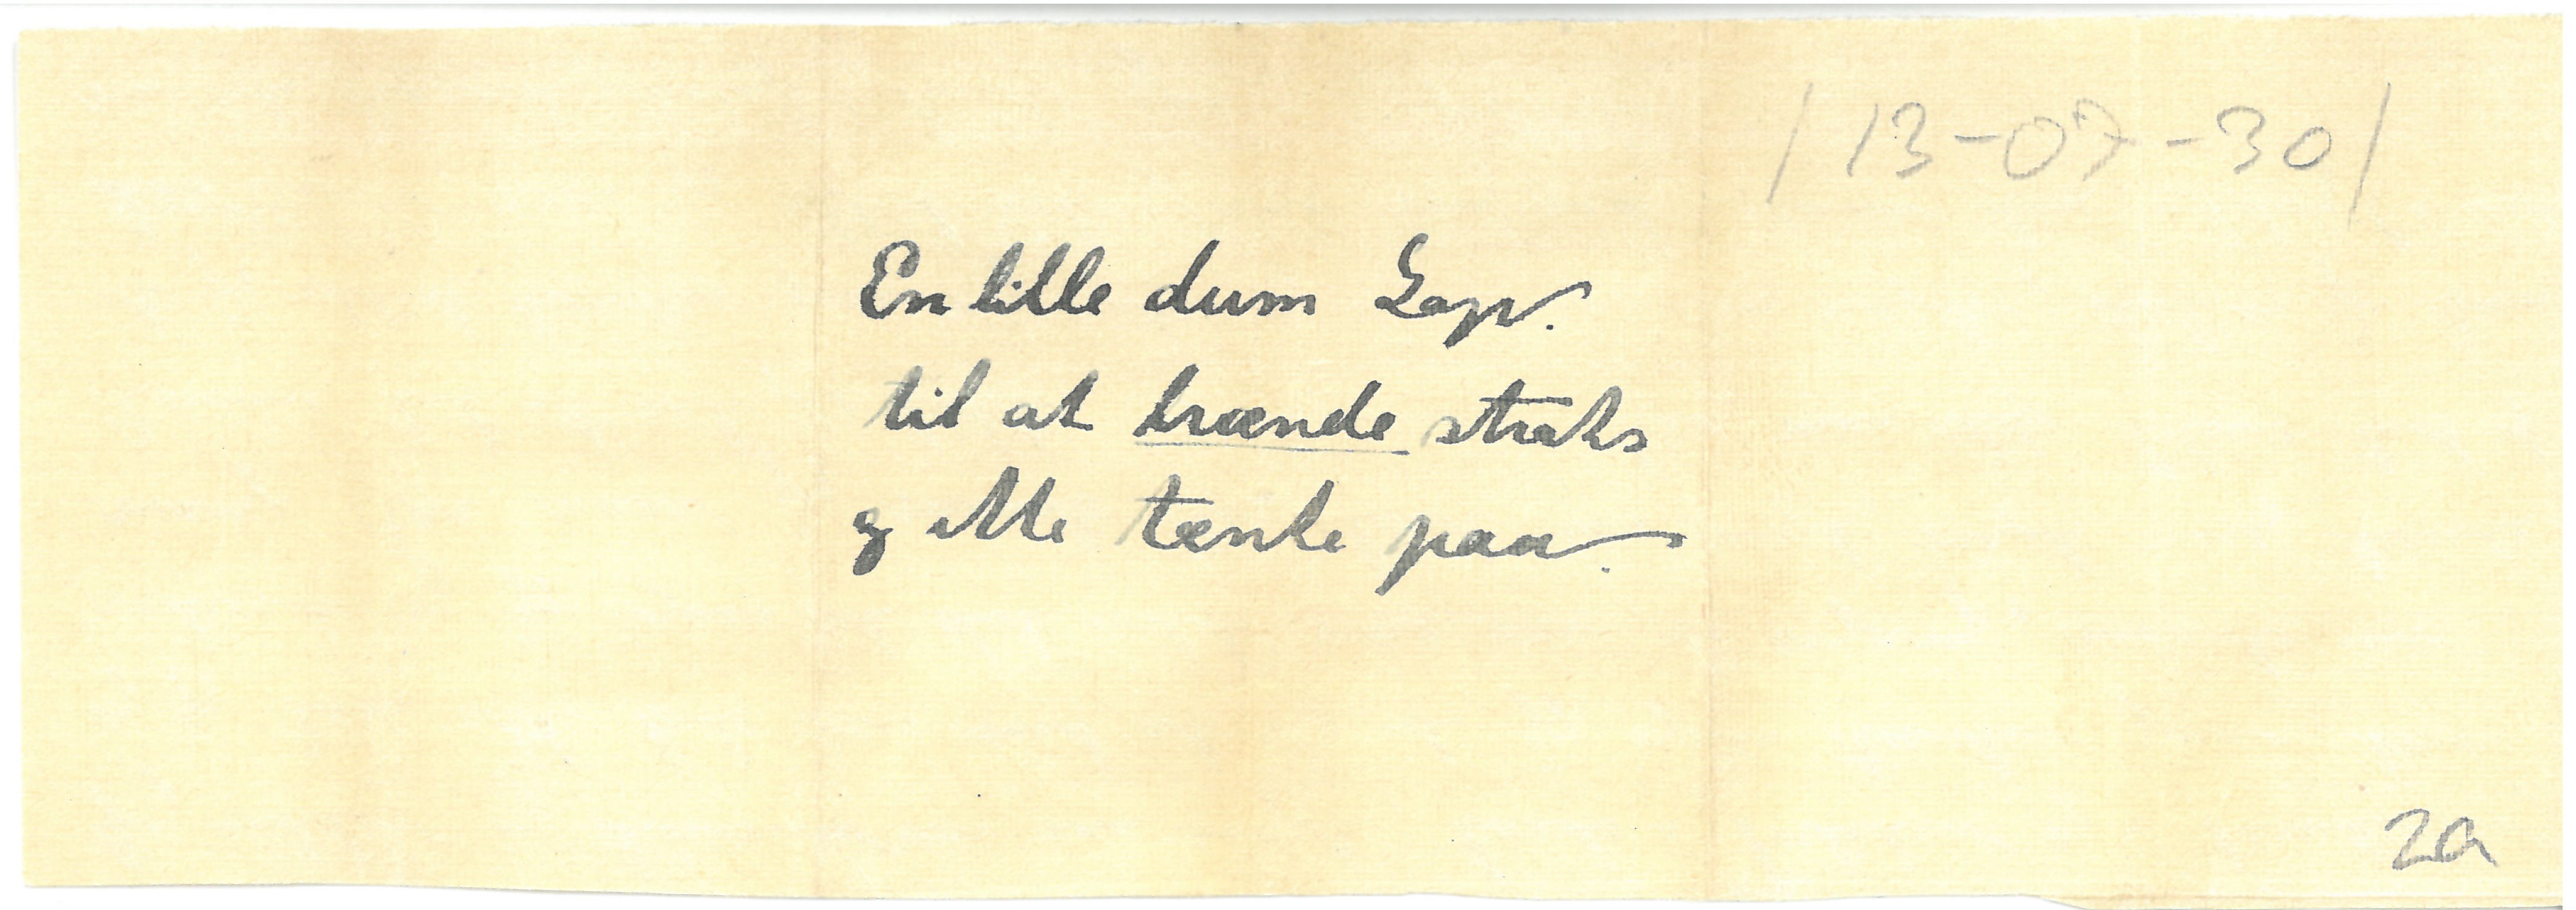 / 13-07-30 /
En lille dum Lap.
til at brænde straks
og ikke tænke paa.
2a